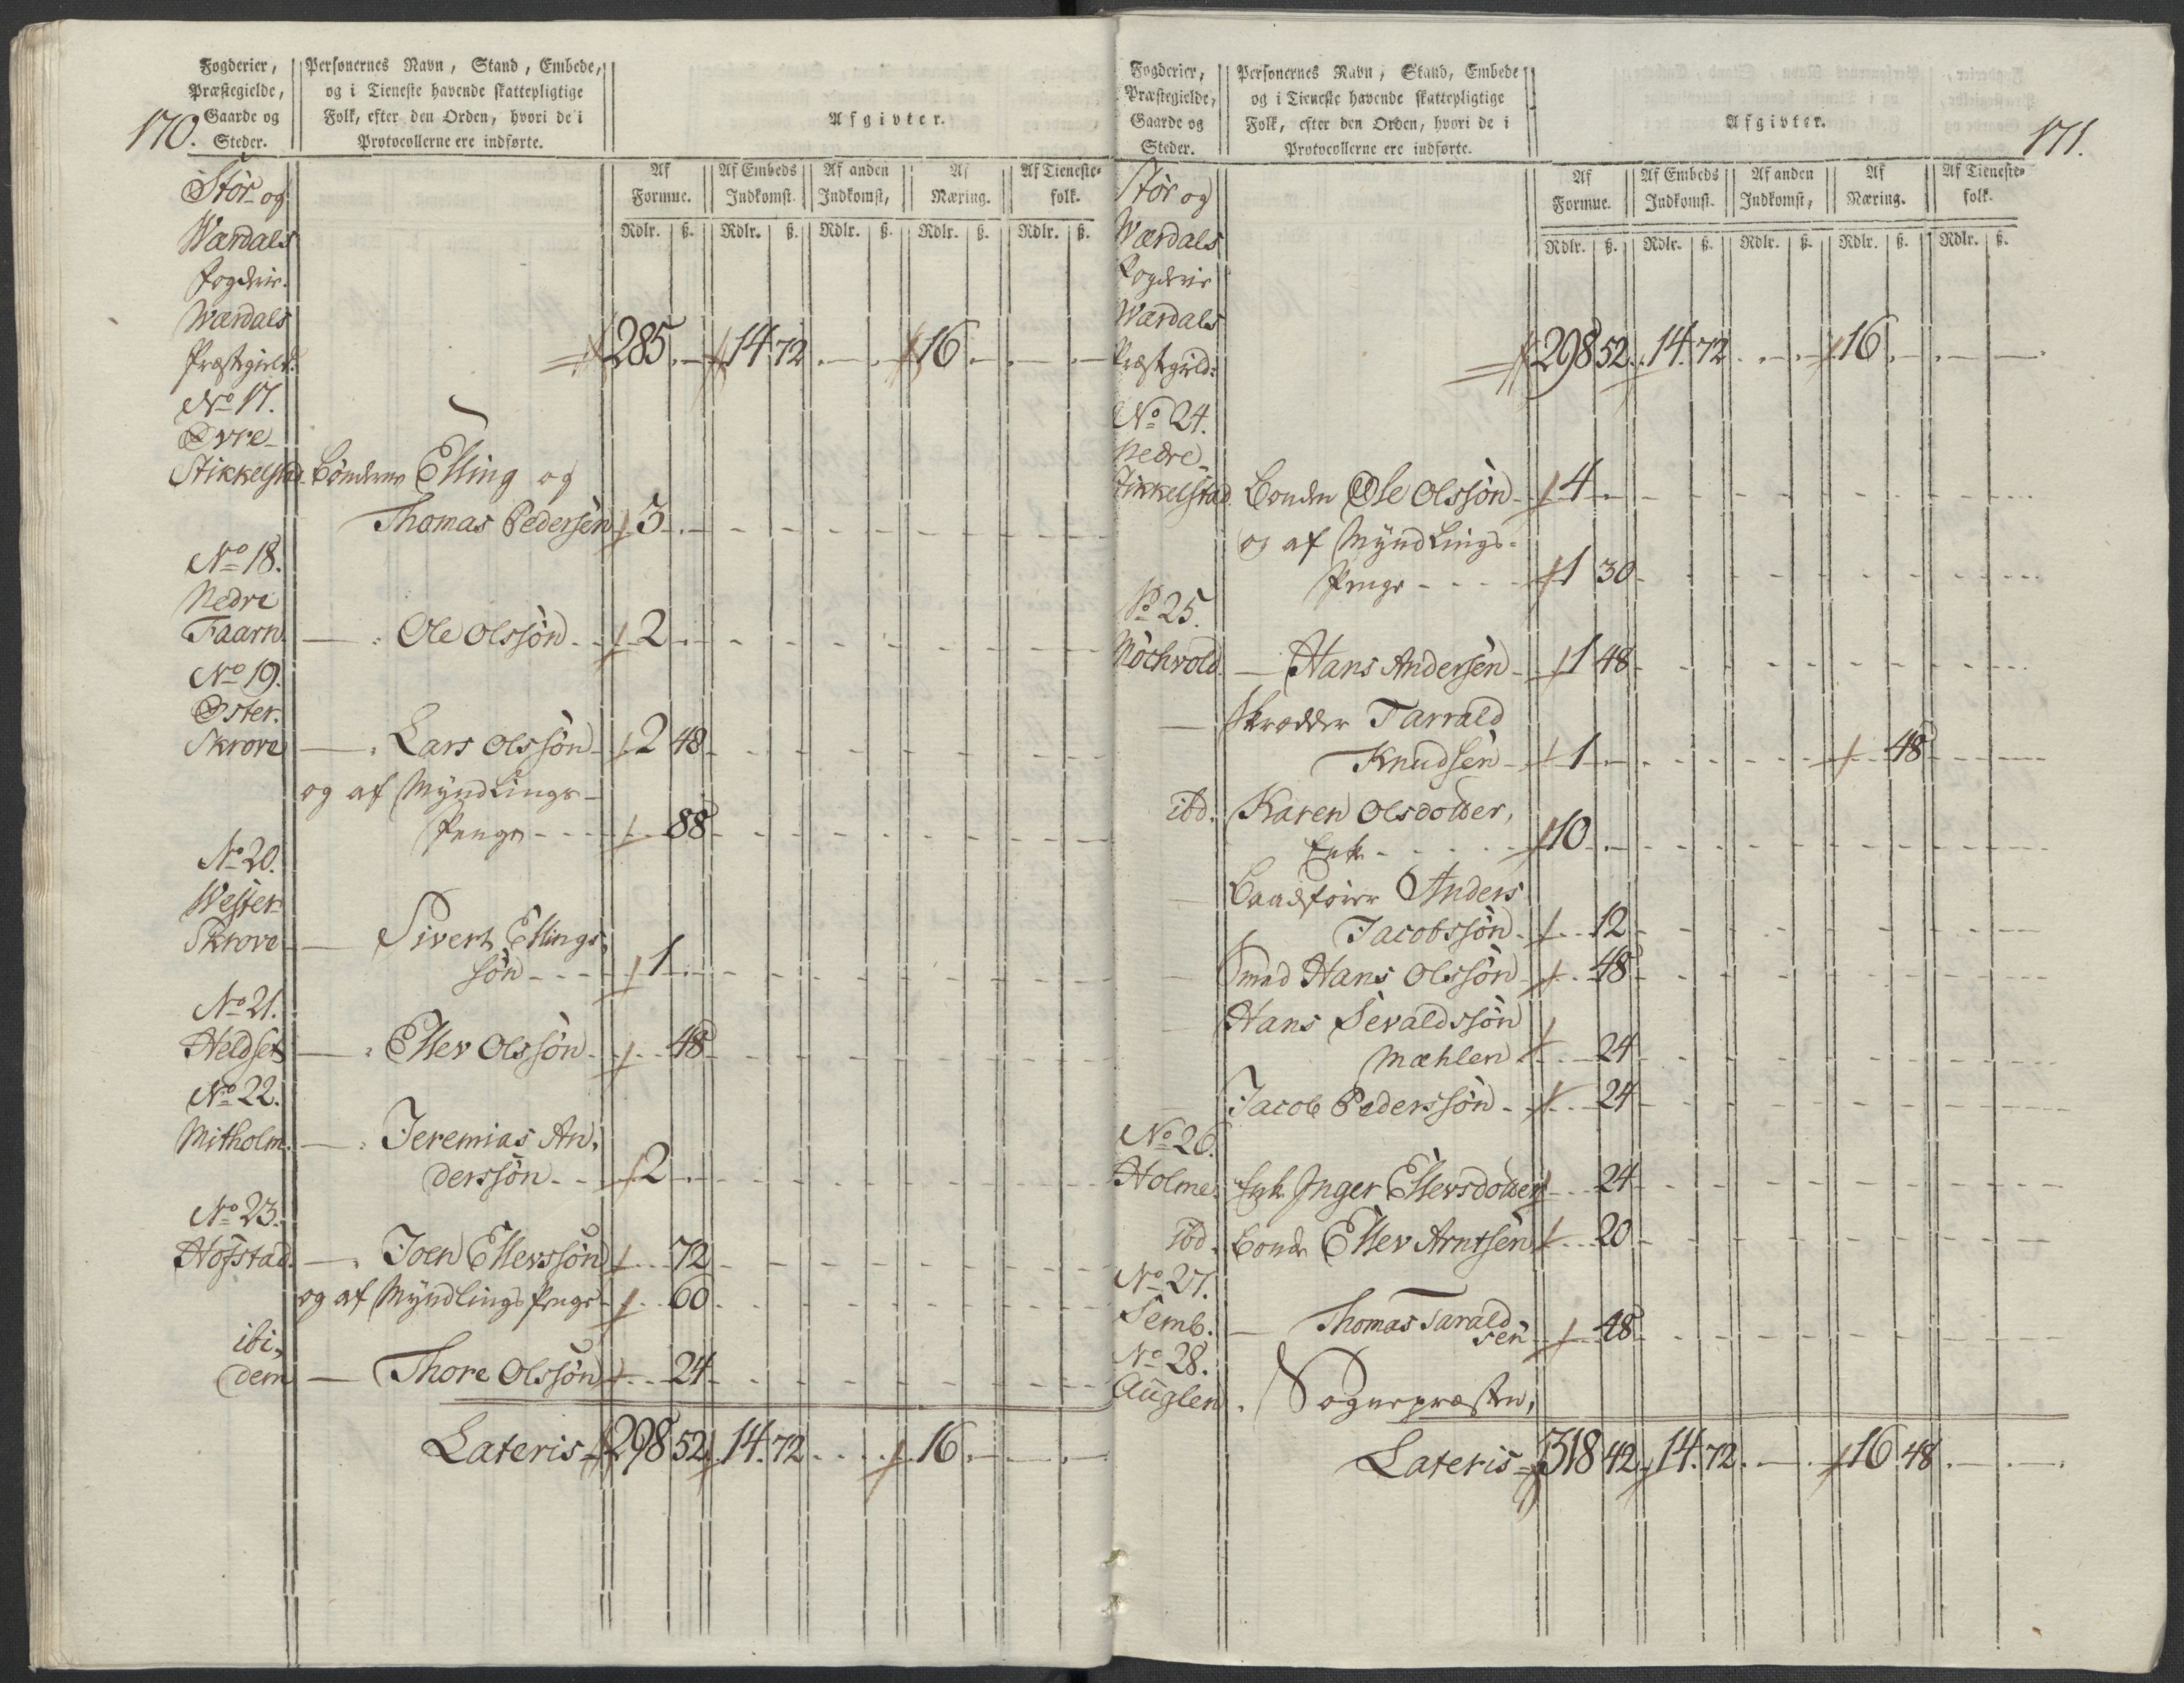 170.
Fogderier,
Præstegielde,
Gaarde og
Steder.
Personernes Navn, Stand, Embede,
og i Tieneste havende skattepligtige
Folk, efter den Orden, hvori de i
Protocollerne ere indførte.
Afgivter.
Af Formue. Af Embeds Indkomst. Af anden Indkomst, Af Næring. Af Tieneste-folk.
Rdlr. ß. Rdlr. ß. Rdlr. ß. Rdlr. ß. Rdlr. ß.
Stör og
Wærdals
Fogderie.
Wærdals
Præstegield. 285. - 14. 72 . - . 16. - . - . -
No 17.
Øvre
Stikkelstad. Bönderne Elling og
Thomas Pedersen 3. -
No 18.
Nedre
Faarn. - Ole Olssön - 2 . -
No 19.
Øster.
Skrove - Lars Olssön - 2 48
og af Myndlings-
Penge - - - 88
No 20.
Wester
Skrove - Sivert Ellings-
sön - - - 1 . -
No 21.
Heldset - Ellev Olssön - 48
No 22.
Mitholm. - Jeremias An-
derssön - - 2 . -
No 23.
Hofstad. - Joen Ellevssön 72
og af Myndlings Penge - 60
ibi-
dem - Thore Olssön 24
Lateris = 298 52. 14. 72 . . . . 16. - . - . -
171.
Fogderier,
Præstegielde,
Gaarde og
Steder.
Personernes Navn, Stand, Embede
og i Tieneste havende skattepligtige
Folk, efter den Orden, hvori de i
Protocollerne ere indførte.
Afgivter.
Af Formue. Af Embeds Indkomst. Af anden Indkomst, Af Næring. Af Tieneste-folk.
Rdlr. ß. Rdlr. ß. Rdlr. ß. Rdlr. ß. Rdlr. ß.
Stör og
Wærdals
Fogderie
Wærdals
Præstegield: 298 52. 14. 72 . - . - 16. - . - -
No 24.
Nedre
Stikkelstad Bonden Ole Olssön - 4 . -
og af Myndlings-
Penge - - - - 1 30
No 25.
Möchvold. - Hans Andersen - 1 48
- Skrædder Tarrald
Knudsen - 1 . - 48
ibd. Karen Olsdotter,
Enke - - - - 10 . -
Baadsföier Anders
Jacobssön - 12
Smed Hans Olssön - 48
Hans Sevaldssön
Mæhlen - 24
Jacob Pederssön - 24
No 26.
Holme. Enke Inger Ellevsdotter 24
ibd. Bonde Ellev Arntsen 20
No 27.
Semb. - Thomas Tarald
sen - 48
No 28.
Auglen. Sognepræsten,
Lateris = 318 42. 14. 72. - . 16. 48 . - . - .